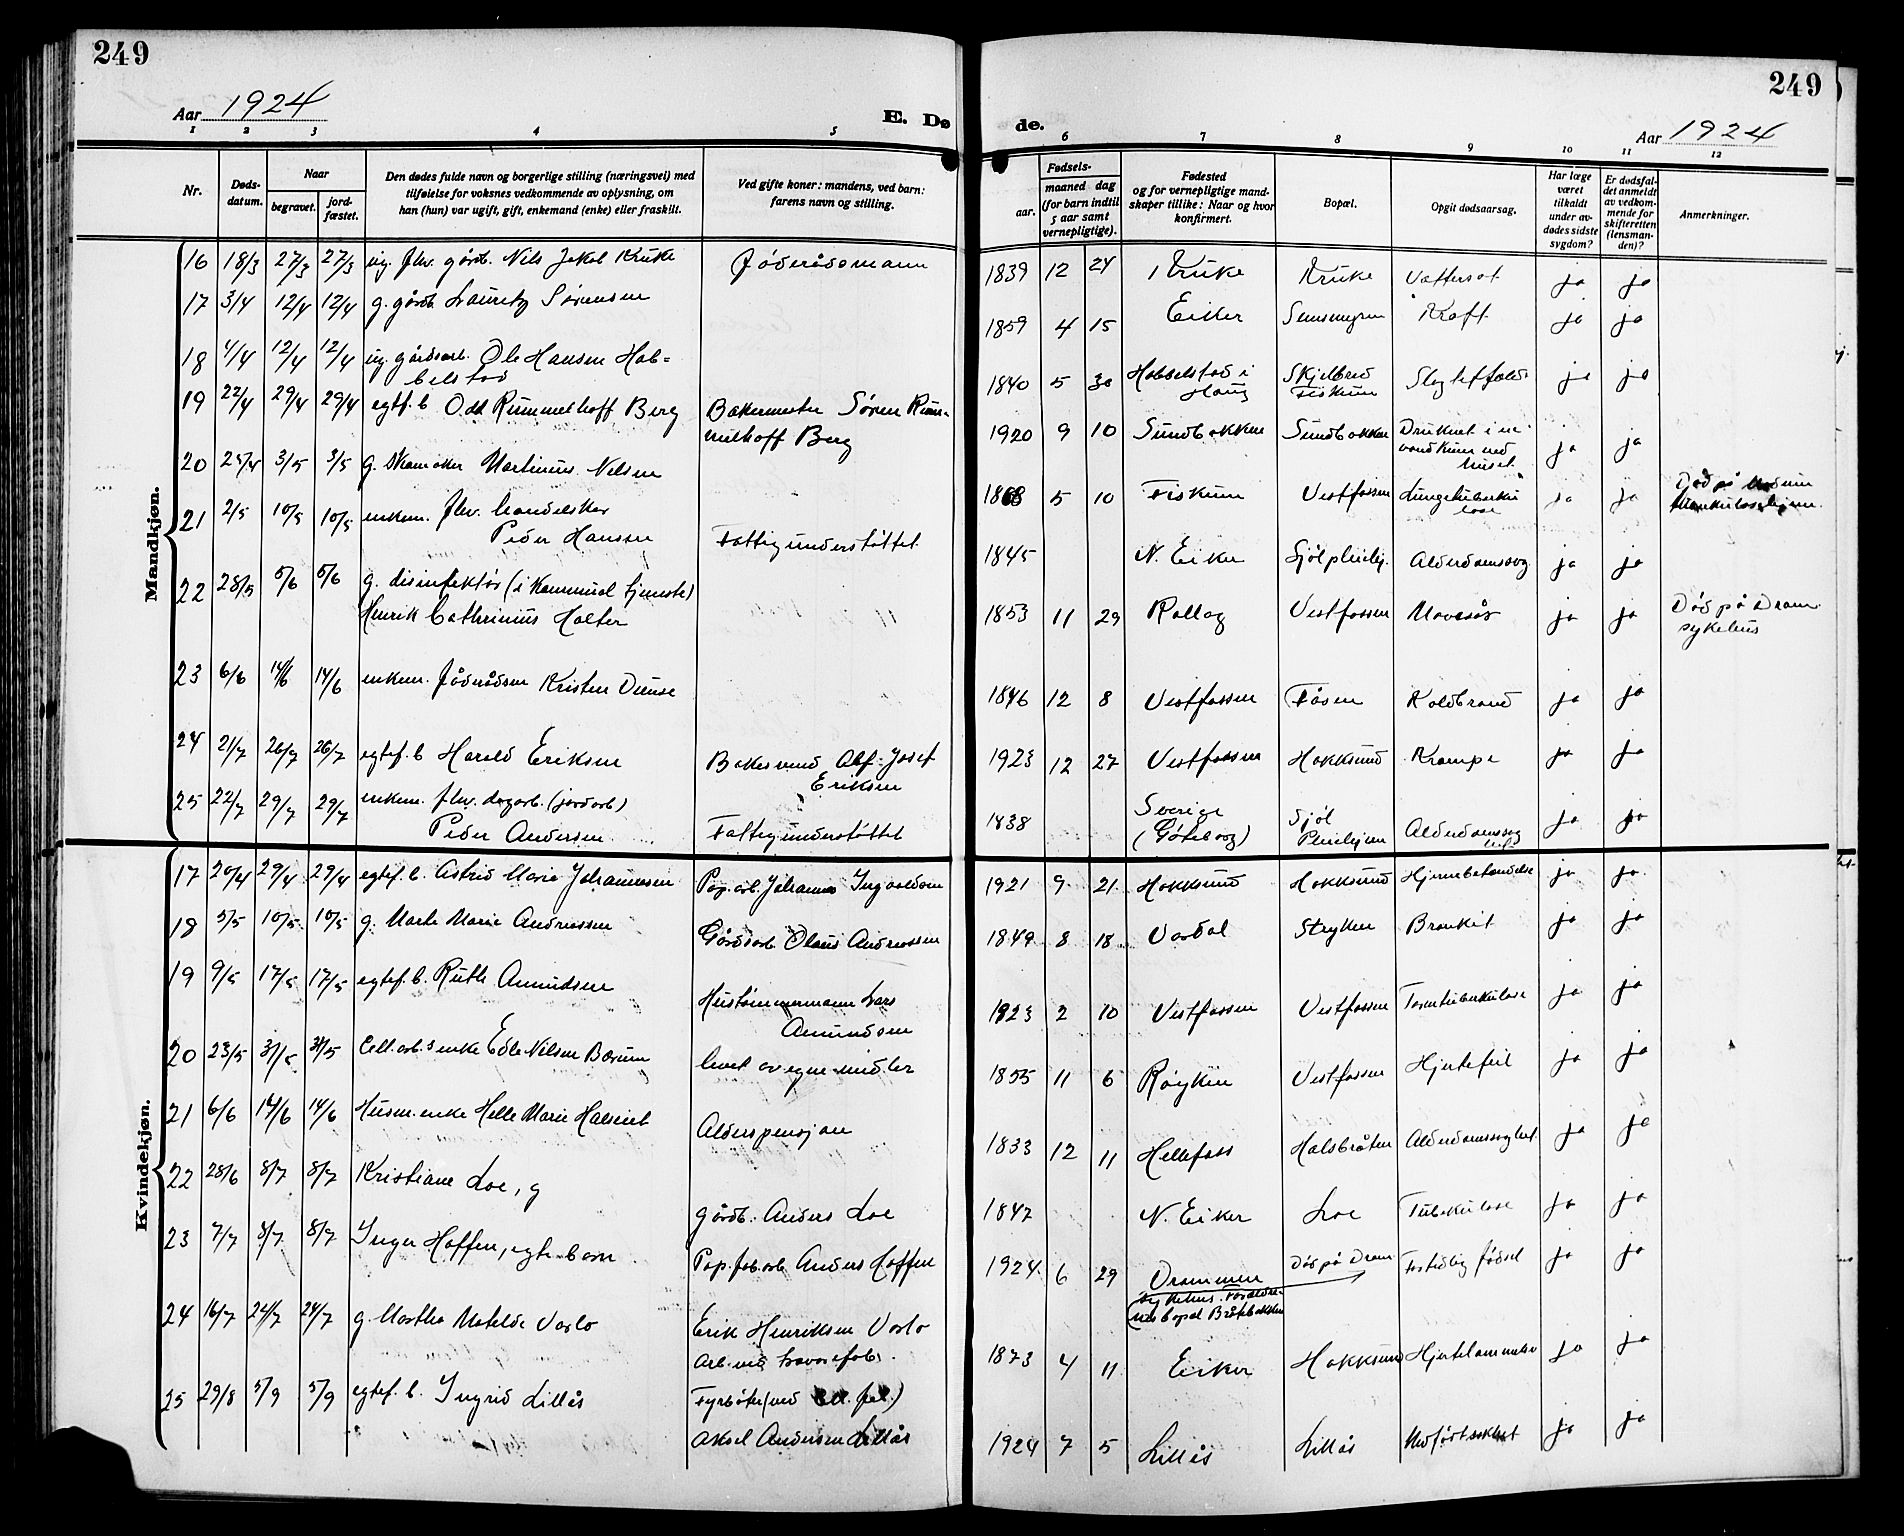 249
249
Aar 1924
E. Dø
de.
Aar 1924
1 2 3 4 5 6 7 8 9 10 11 12
Nr.
Døds-
datum.
Naar
begravet.
jord-
fæstet.
Den dødes fulde navn og borgerlige stilling (næringsvei) med
tilføielse for voksnes vedkommende av oplysning, om
han (hun) var ugift, gift, enkemand (enke) eller fraskilt.
Ved gifte koner: mandens, ved barn:
farens navn og stilling.
Fødsels-
aar.
maaned dag
(for barn indtil
5 aar samt
vernepligtige).
Fødested
og for vernepligtige mand-
skaper tillike: Naar og hvor
konfirmert.
Bopæl.
Opgit dødsaarsag.
Har læge
været
tilkaldt
under av-
dødes sidste
sygdom?
Er dødsfal-
det anmeldt
av vedkom-
mende for
skifteretten
(lensman-
den)?
Anmerkninger.
Mandkjøn.
16 18/3 27/3 27/3 ug. fhv. gårdb. Nils Jakob Kruke 1839 12 24 Kruke Kruke Vattersot ja ja
17 3/4 12/4 12/4 g. gårdb. Lauritz Sørensen 1859 4 15 Eiker Kræft ja ja
18 4/4 12/4 12/4 ug. gårdsarb. Ole Hansen Hob-
belstad
1840 5 30 Hobbelstad i
Haug
Skjelbred
Fiskum
ja ja
19 22/4 29/4 29/4 egtef. b Odd Rummelhoff Berg Bakermester Søren Rum-
melhoff Berg
1920 9 10 Sundbakken Sundbakken Druknet i en
vandkum ved
huset.
ja ja
20 25/4 3/5 3/5 g. skomaker Martinius Nelsen 1868 5 10 Fiskum Vestfossen Lungetuberku
lose
ja ja
21 2/5 10/5 10/5 enkem. fhv. handelskar
Peder Hansen Fattigunderstøttet
1845 N. Eiker Alderdomssvag ja ja
22 28/5 5/6 5/6 g. disinfektør (i kommunal tjeneste)
Henrik Cathrinius Holter
1853 11 29 Rollag Vestfossen Mavesår ja ja Død på Dram.
sykehus
23 6/6 14/6 14/6 enkem. Kristen Dunse
1846 12 8 Vestfossen Fåsen Koldbrand ja ja
24 21/7 26/7 26/7 egtef. b Harald Eriksen Bakersvend Alf Josef
Eriksen
1923 12 27 Vestfossen Hokksund Krampe ja ja
25 22/7 29/7 29/7 enkem. fhv. dagarb. (jordarb)
Peder Andersen Fattigunderstøttet
1838 Sverige
(Göteborg)
Sjøl
Pleiehjem
Alderdomssvag
ja ja
Kvindekjøn.
17 20/4 29/4 29/4 egtef. b. Astrid Marie Johannessen Pap.arb Johannes Ingvaldsen 1921 9 21 Hokksund Hokksund ja ja
18 5/5 10/5 10/5 g. Marte Marie Andreassen Gårdsarb Olaus Andreassen 1849 8 18 Vardal Stryken Bronkit ja ja
19 9/5 17/5 17/5 egtef. b. Ruth Amundsen Hustømmermann Lars
Amundsen
1923 2 10 Vestfossen Vestfossen Tarmtuberkulose ja ja
20 23/5 31/5 31/5 Cell.arb.s enke Edle Nilsen Bærum levet av egne midler 1855 11 6 Røyken Vestfossen Hjertefeil ja ja
21 6/6 14/6 14/6 Husm. enke Helle Marie Alderspensjon 1833 12 11 Hellefoss Halsbråten Alderdomssvaghet ja ja
22 28/6 8/7 8/7 Kristiane Loe, g gårdb. Anders Loe 1847 N. Eiker Loe Tuberkulose ja ja
23 7/7 8/7 8/7 Inger Hoffen, egte barn Pap.fab.arb Anders Hoffen 1924 6 29 Drammen
sykehus. Foreldre-
nes bopæl
Død på Dram. Fortidlig fødsel ja ja
24 16/7 24/7 24/7 g. Martha Matilde Varlo Erik Henriksen Varlo
1873 4 11 Eiker Hokksund Hjertelammelse ja ja
25 29/8 5/9 5/9 egtef. b. Ingrid Lillås Fyrbøter (ved Cell. fab.)
Aksel Andersen Lillås
1924 7 5 Lillås Lillås ja ja